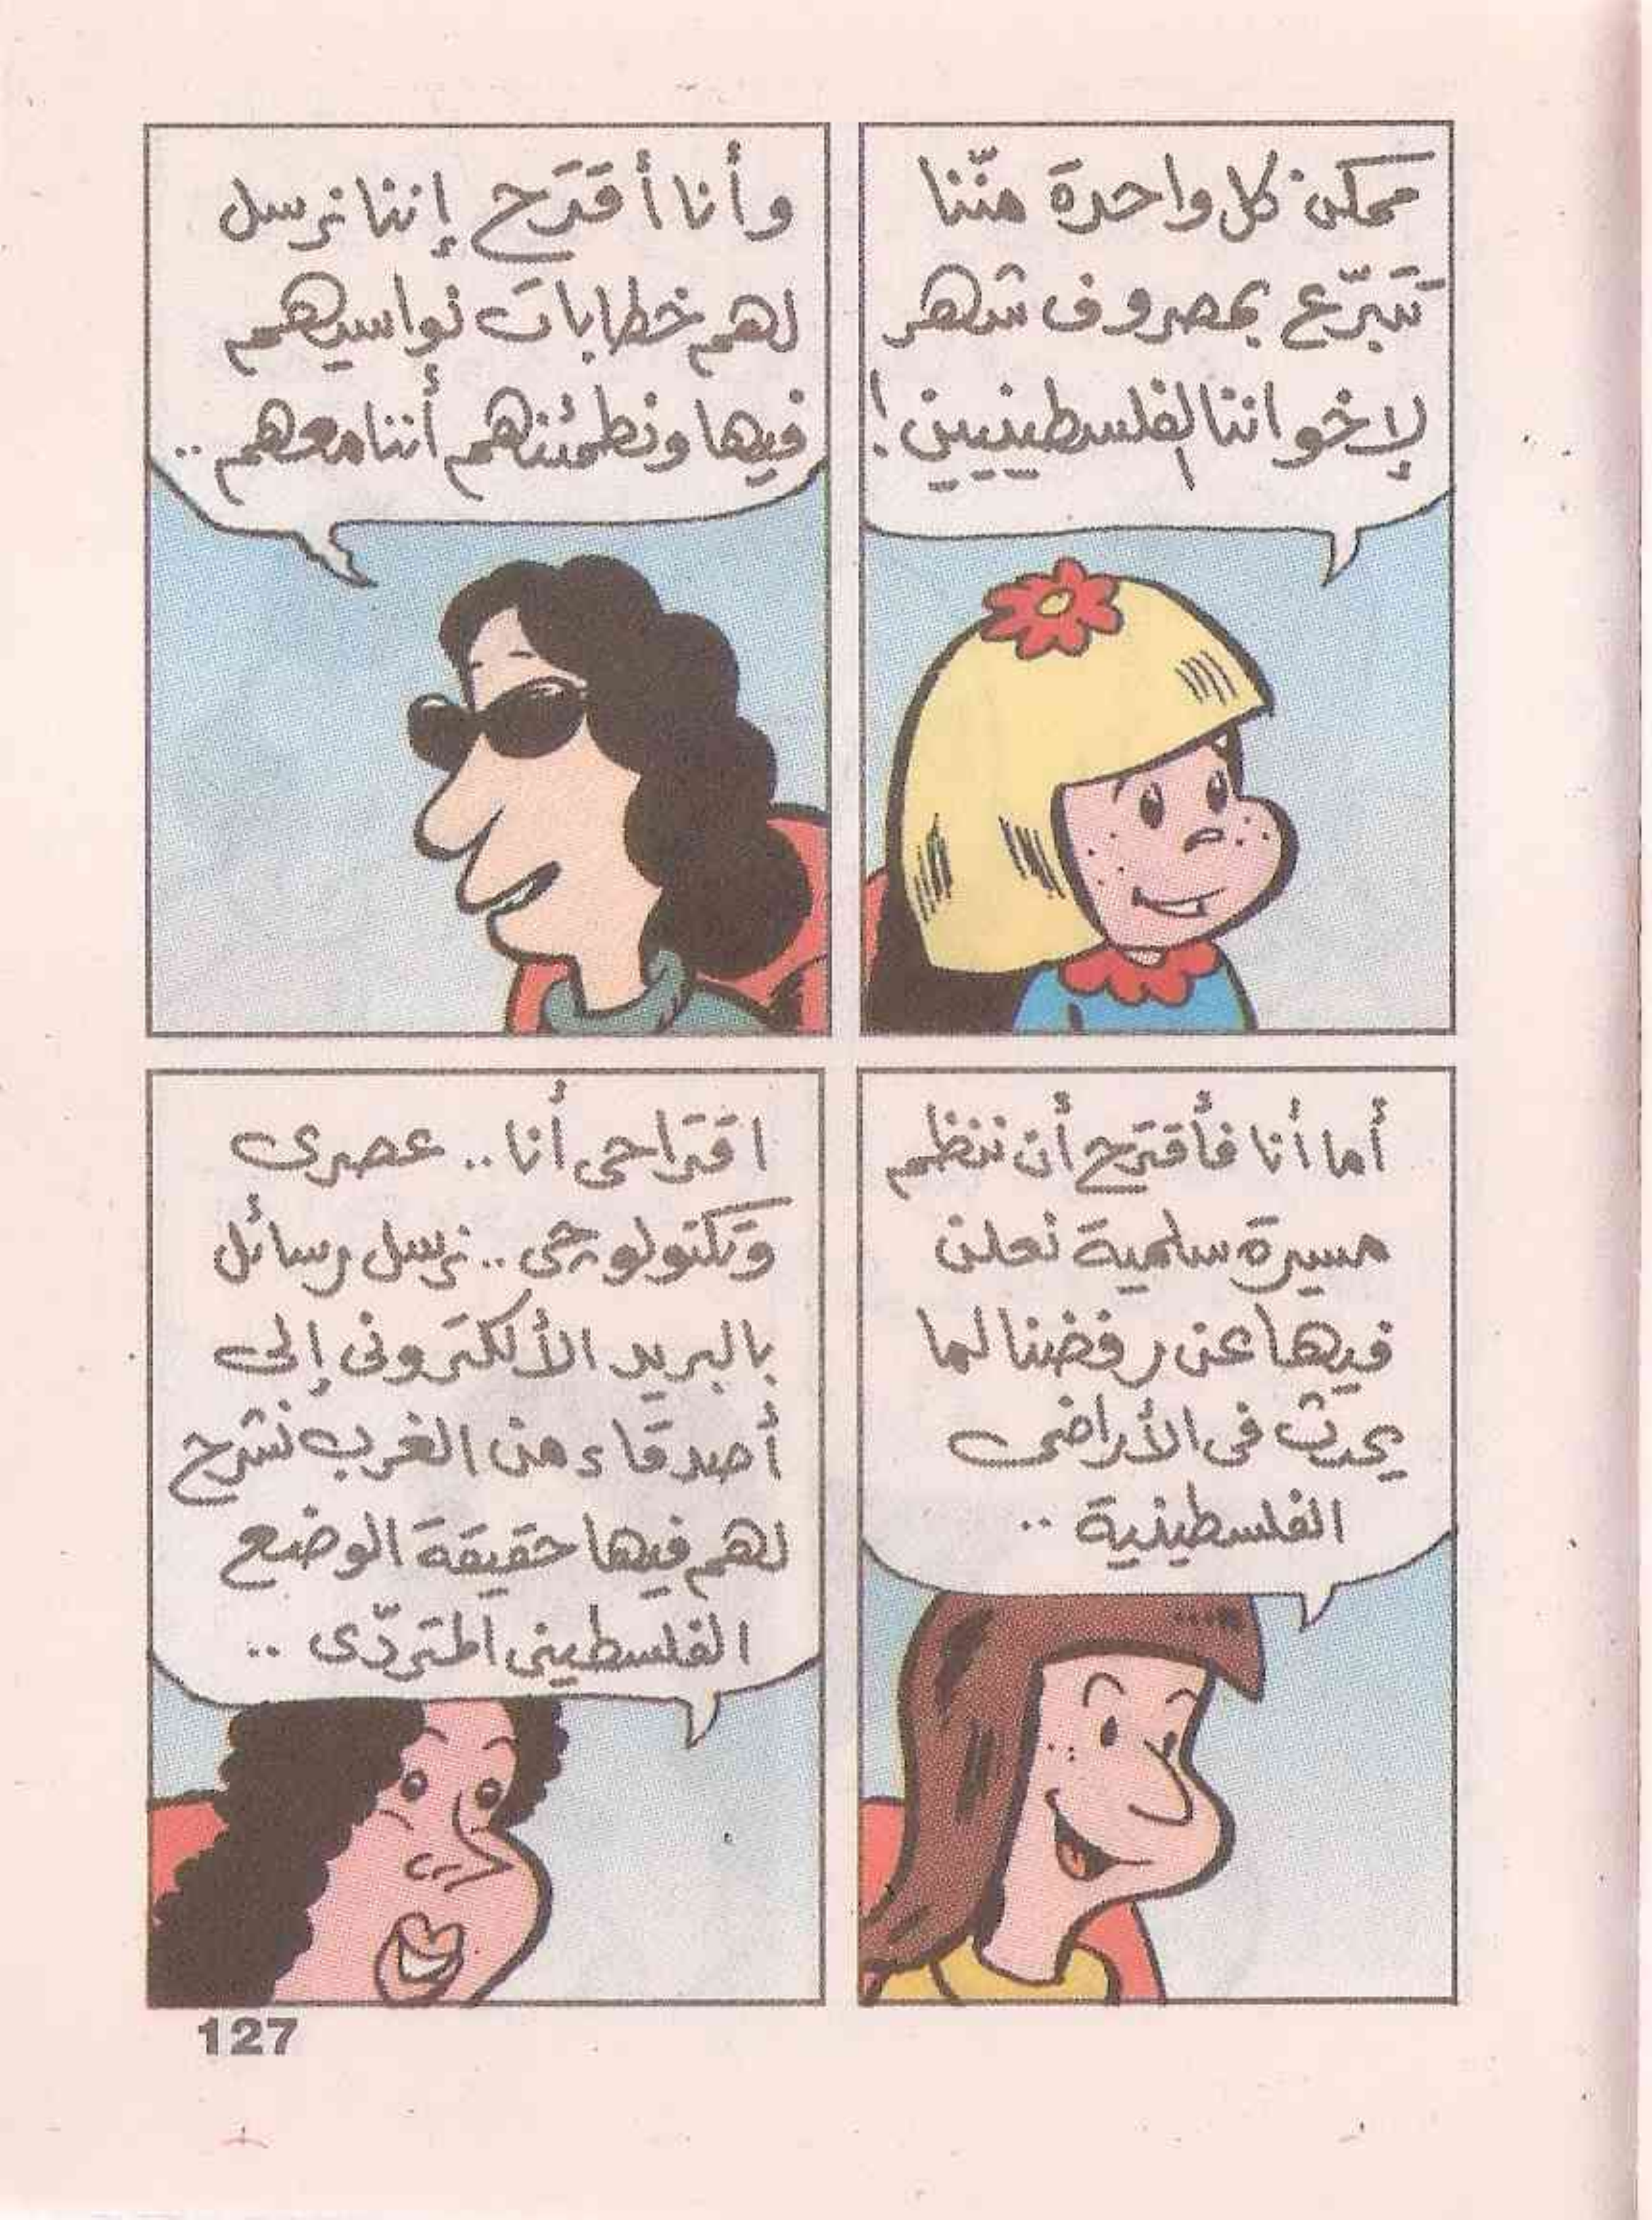 ممكن كل واحدة منّنا
تتبرّع بمصروف شهر
لإخواننا الفلسطينيين!
وأنا أقترح إننا نرسل
لهم خطابات نواسيهم
فيها ونطمئنهم أننا معهم..
أما أنا فأقترح أن ننظم
مسيرة سلمية نعلن
فيها عن رفضنا لما
يحدث فى الأراضى
الفلسطينية ..
اقتراحى أنا .. عصرى
وتكنولوجى .. نرسل رسائل
بالبريد الألكترونى إلى
أصدقاء من الغرب نشرح
لهم فيها حقيقة الوضع
الفلسطينى المتردّى ..
127